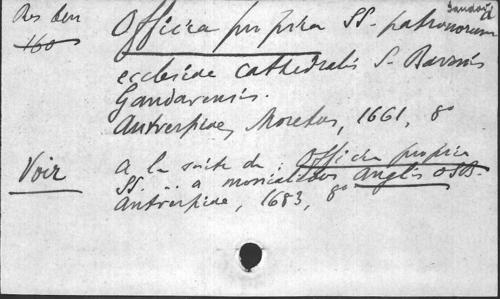 Res den
160
Officia propria SS. patronorum
ecclesiae cathedralis S. Bavonis
Gandavensis.
Antverpiae, Moretus, 1661, 8°
Voir
à la suite de : Officia propria
SS. .. a monialibus Anglis OSB.
Antverpiae, 1683, 8°